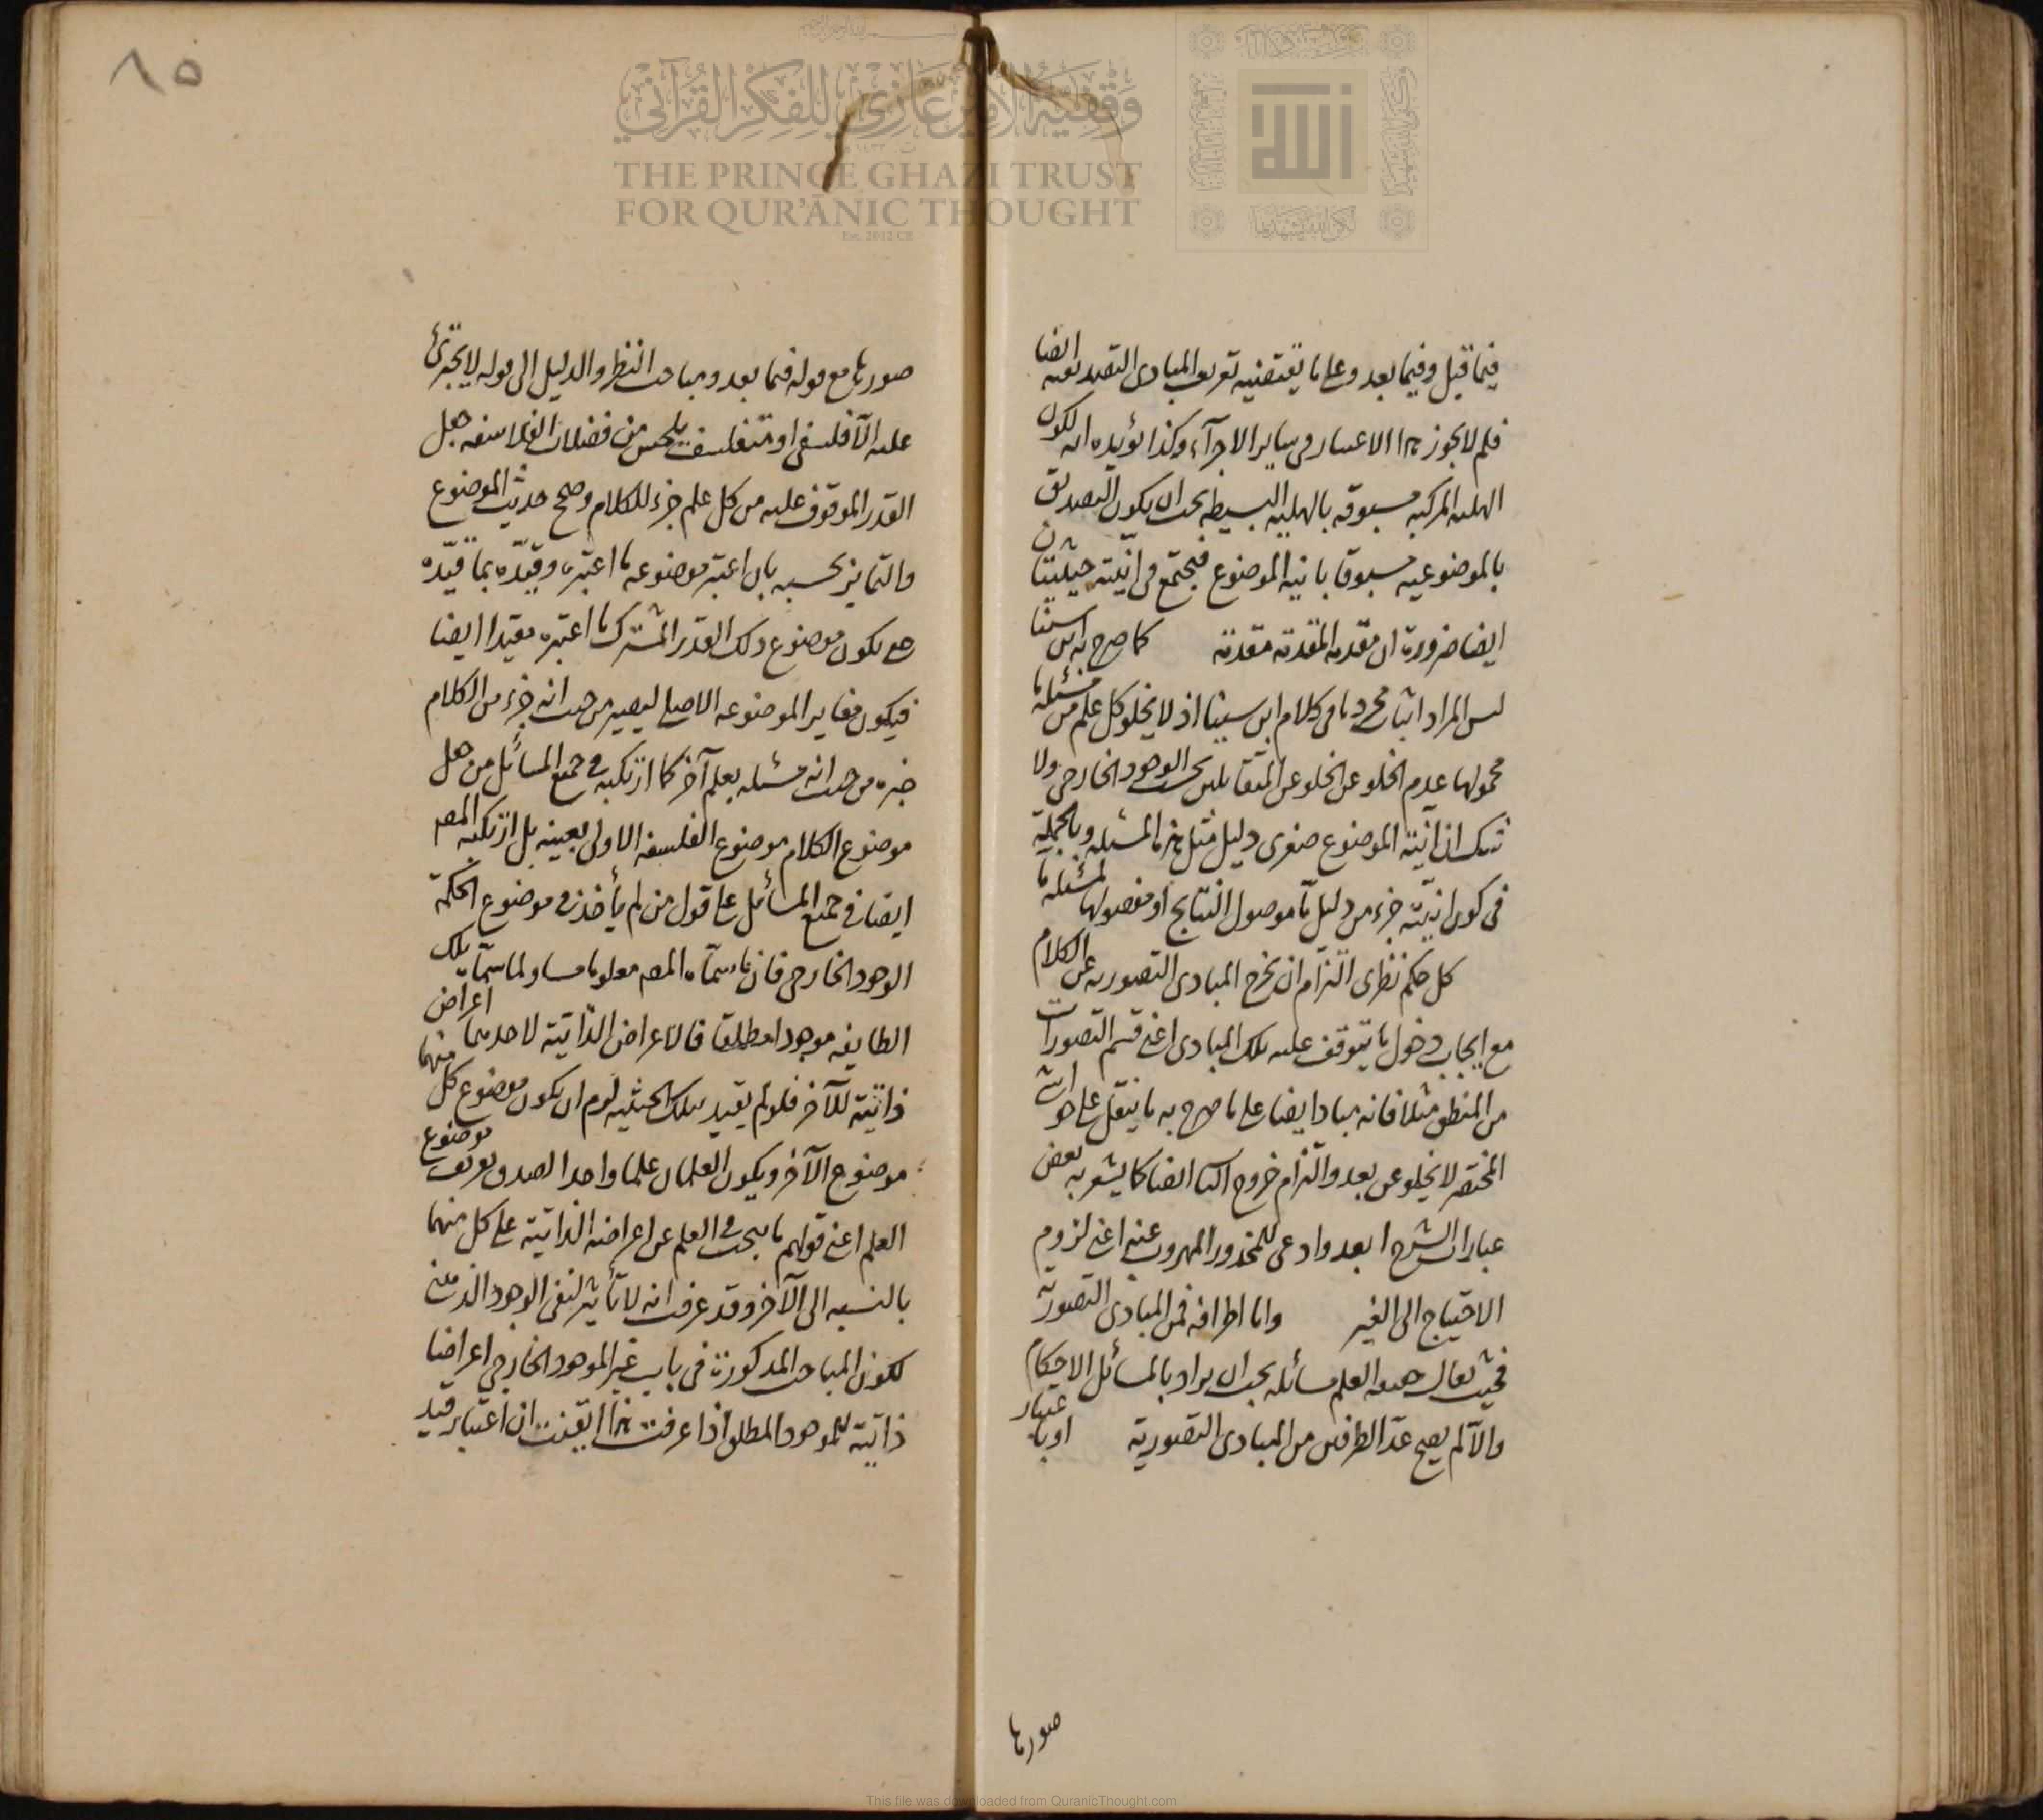 فيما قبل وفيما بعد وعلى ما يقتضيه تعريف المبادى التصديقية ايضا
فلم لا يجوز هذا الاعتبار فى ساير الاجزآء وكذا يؤيده انه لكون
الهلية المركبة مسبوقة بالهلية البسيطة يجب ان يكون التصديق
بالموضوعية مسبوقا بانية الموضوع فيجتمع فى انيته حيثيتان
ايضا ضرورة ان مقدمة المقدمة مقدمة كما صرح به ابن سينا
ليس المراد اثبات محمول ما فى كلام ابن سينا اذ لا يخلو كل علم من مسئلة
محمولها عدم الخلو عن المتقابلين بحسب الوجود الخارجى ولا
شك ان انية الموضوع صغرى دليل مثل هذه المسئلة وبالجملة
فى كون انيته جزء من دليل ما موصول النتايج او مفصولها لمسئلة ما
كل حكم نظرى التزام ان تخرج المبادى التصورية عن الكلام
مع ايجاب دخول ما يتوقف عليه تلك المبادى اعنى قسم التصورات
من المنطق مثلا فانه مباد ايضا على ما صرح به ما ينقل على حواشى
المختصر لا يخلو عن بعد والتزام خروج ايضا كما يشعر به بعض
عبارات الشرح ابعد وادعى للمحذور المهروب عنه اعنى لزوم
الاحتياج الى الغير واما اطرافه فمن المبادى التصورية
فحيث يقال حقيقة العلم مسائله يجب ان يراد بالمسائل الاحكام
والا لم يصح عد الطرفين من المبادى التصورية او باعتبار
صورها
٨٥
صورها مع قوله فيما بعد ومباحث النظر والدليل الى قوله لا يجترئ
عليه الا فلسفى او متفلسف يلحس من فضلات الفلاسفة جعل
القدر الموقوف عليه من كل علم جزء للكلام وصح حديث الموضوع
والتمايز بحسبه بان اعتبر موضوعه ما اعتبره وقيده بما قيده
حتى يكون موضوع ذلك القدر المشترك ما اعتبره مقيدا ايضا
فيكون مغايرا لموضوعه الاصلى ليصير من حيث انه جزء من الكلام
غيره من حيث انه مسئلة بعلم آخر كما ارتكبه فى جميع المسائل من جعل
موضوع الكلام موضوع الفلسفة الاولى بعينه بل ارتكبه المصـ
ايضا فى جميع المسائل على قول من لم يأخذ فى موضوع الحكمة
الوجود الخارجى فان ما سماه المصـ معلوما مساو لما سماه تلك
الطايفة موجودا مطلقا فالاعراض الذاتية لاحدهما اعراض
ذاتية للآخر فلو لم يقيد بتلك الحيثية لزم ان يكون موضوع كل منهما
موضوع الآخر ويكون العلمان علما واحدا لصدق تعريف موضوع
العلم اعنى قولهم ما يبحث فى العلم عن اعراضه الذاتية على كل منهما
بالنسبة الى الآخر وقد عرفت انه لا تأثير لنفى الوجود الذهنى
لكون المباحث المذكورة فى باب غير الموجود الخارجى اعراضا
ذاتية للموجود المطلق اذا عرفت هذا ايقنت ان اعتبار قيد